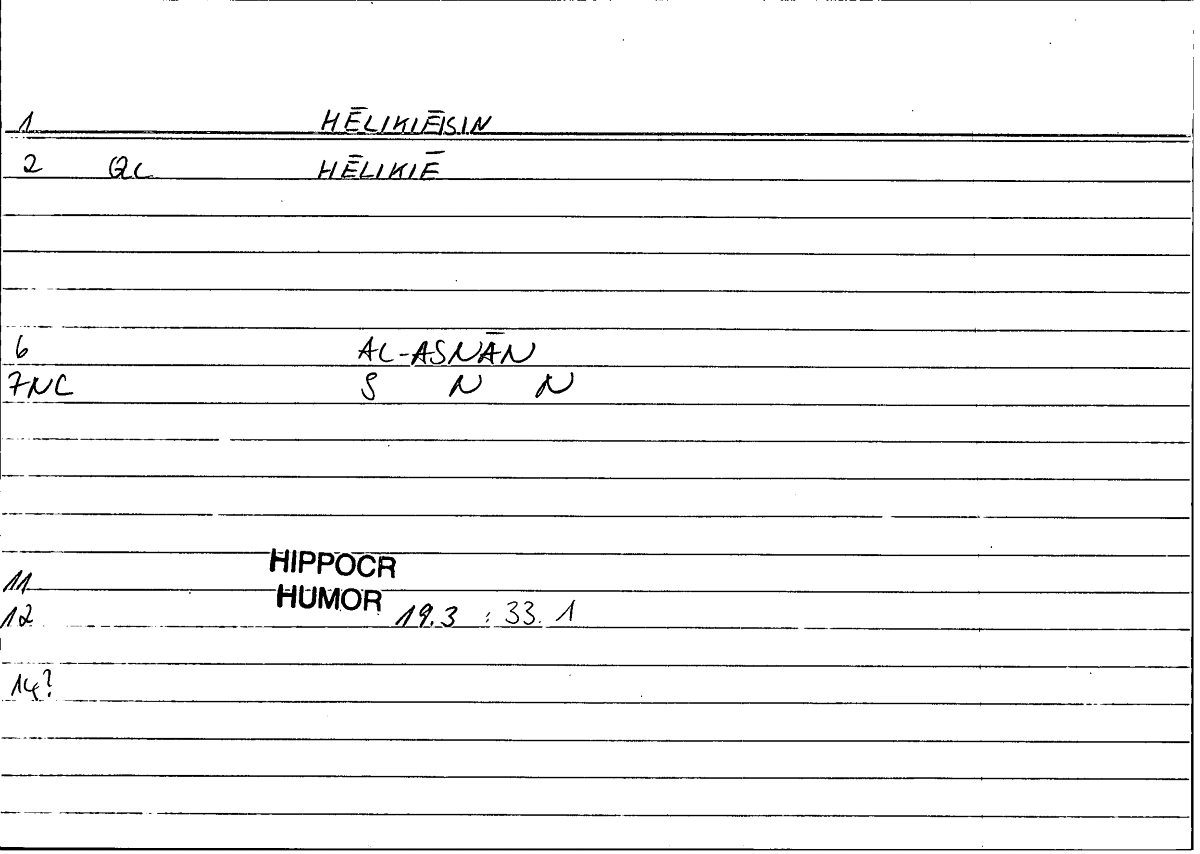 1 HĒLIKIĒISIN
2 QC HĒLIKIĒ
6 AL-ASNĀN
7NC S N N
HIPPOCR
11 HUMOR
12 19.3 : 33.1
14?